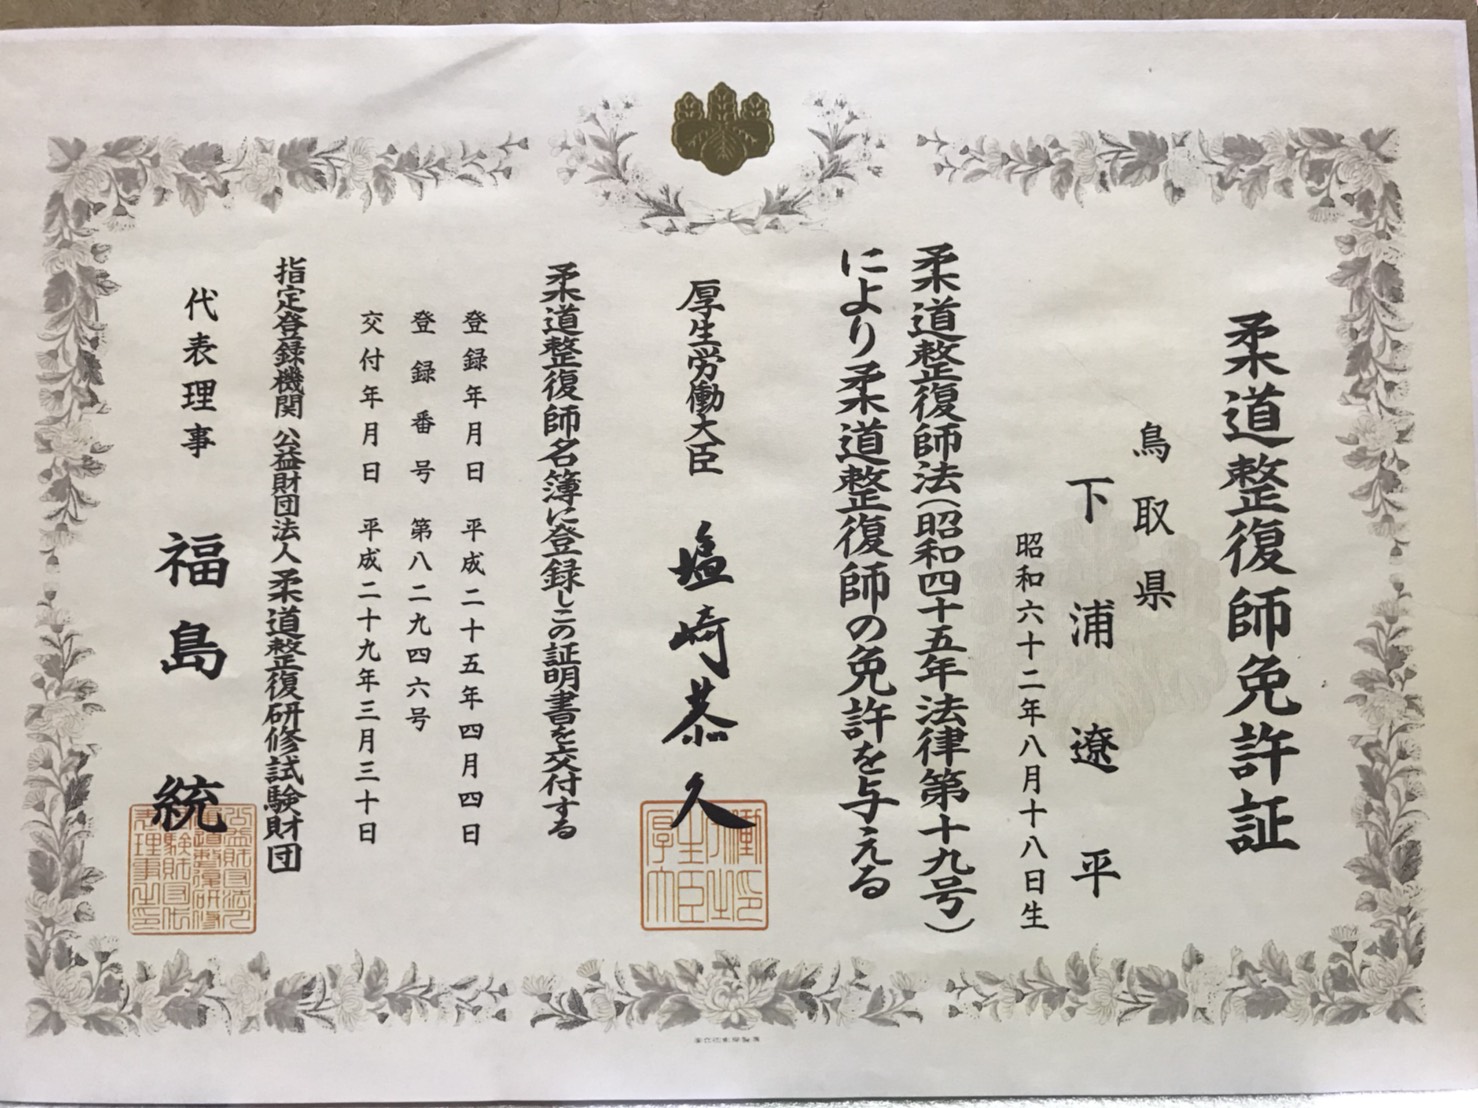 柔道整復師免許証
鳥取県
下浦遼平
昭和六十二年八月十八日生
柔道整復師法(昭和四十五年法律第十九号)
により柔道整復師の免許を与える
厚生労働大臣 塩崎恭久
柔道整復師名簿に登録しこの証明書を交付する
登録年月日 平成二十五年四月四日
登録番号 第八二九四六号
交付年月日 平成二十九年三月三十日
指定登録機関 公益財団法人柔道整復研修試験財団
代表理事 福島統